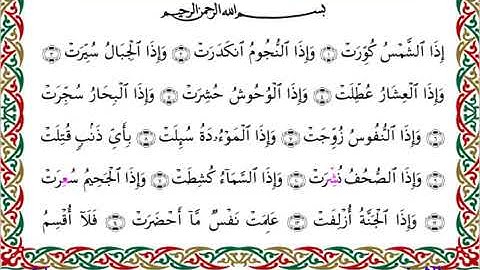 بسم الله الرحمن الرحيم
إِذَا الشَّمْسُ كُوِّرَتْ ۝ وَإِذَا النُّجُومُ انكَدَرَتْ ۝ وَإِذَا الْجِبَالُ سُيِّرَتْ ۝
وَإِذَا الْعِشَارُ عُطِّلَتْ ۝ وَإِذَا الْوُحُوشُ حُشِرَتْ ۝ وَإِذَا الْبِحَارُ سُجِّرَتْ
۝ وَإِذَا النُّفُوسُ زُوِّجَتْ ۝ وَإِذَا الْمَوْءُدَةُ سُئِلَتْ ۝ بِأَيِّ ذَنْبٍ قُتِلَتْ
۝ وَإِذَا الصُّحُفُ نُشِرَتْ ۝ وَإِذَا السَّمَاءُ كُشِطَتْ ۝ وَإِذَا الْجَحِيمُ سُعِّرَتْ
۝ وَإِذَا الْجَنَّةُ أُزْلِفَتْ ۝ عَلِمَتْ نَفْسٌ مَّا أَحْضَرَتْ ۝ فَلَا أُقْسِمُ